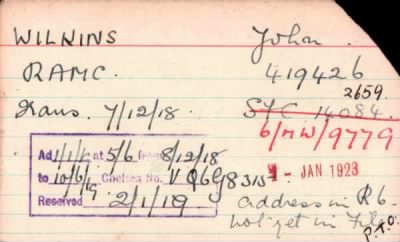 WILKINS John.
RAMC. 419426
2659.
Trans. 7/12/18. STC 14084.
6/MW/9779
Ad 1/1/ at 5/6 from 8/12/18
1- JAN 1923
to 10/6/19 Chelsea No. V Q6G8315
Received 2/1/19
address in R6.
not yet in File
P.T.O.